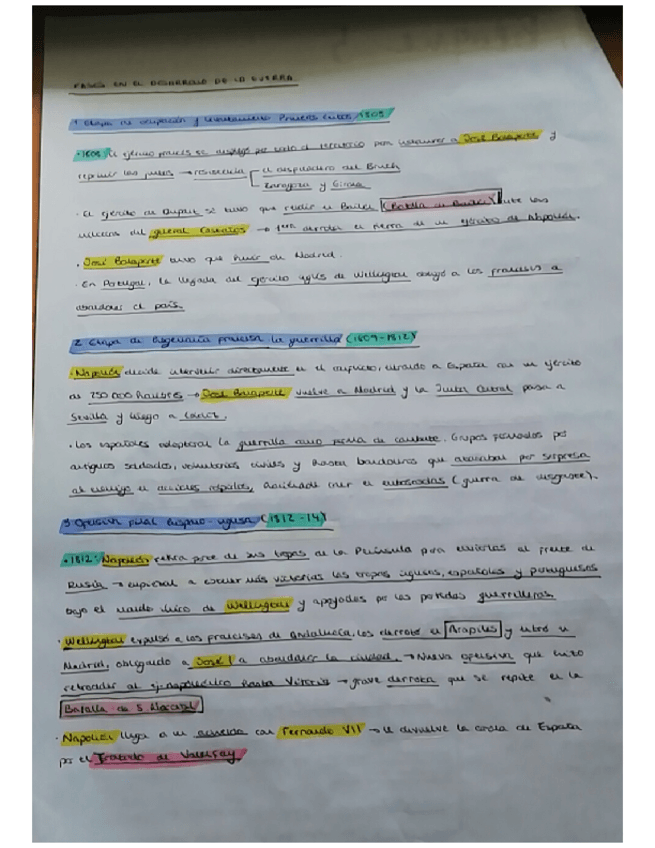 FASES EN EL DESARROLLO DE LA GUERRA
1 Etapa de ocupación y levantamiento Primeros éxitos 1808
·1808 el ejército francés se despliega por todo el territorio para instaurar a José Bonaparte y
reprimir las juntas → resistencia el desfiladero del Bruch
Zaragoza y Girona
· El ejército de Dupont se tuvo que rendir en Bailén (Batalla de Bailén) ante las
milicias del general Castaños → 1era derrota en tierra de un ejército de Napoleón.
· José Bonaparte tuvo que huir de Madrid.
· En Portugal, la llegada del ejército inglés de Wellington obligó a los franceses a
abandonar el país.
2 Etapa de hegemonía francesa la guerrilla (1809-1812)
· Napoleón decide intervenir directamente en el conflicto, entrando a España con un ejército
de 250 000 hombres → José Bonaparte vuelve a Madrid y la Junta Central pasa a
Sevilla y luego a Cádiz.
· Los españoles adoptaron la guerrilla como forma de combate. Grupos formados por
antiguos soldados, voluntarios civiles y hasta bandoleros que atacaban por sorpresa
al enemigo en acciones rápidas, haciéndole caer en emboscadas (guerra de desgaste).
3 Ofensiva final hispano-inglesa (1812-14)
·1812: Napoleón retira parte de sus tropas de la Península para enviarlas al frente de
Rusia → empiezan a obtener más victorias las tropas inglesas, españolas y portuguesas
bajo el mando único de Wellington y apoyados por las partidas guerrilleras.
· Wellington expulsó a los franceses de Andalucía, los derrotó en Arapiles y entró en
Madrid, obligando a José I a abandonar la ciudad. → Nueva ofensiva que hizo
retroceder al ej. napoleónico hasta Vitoria → grave derrota que se repite en la
Batalla de S Marcial
· Napoleón llega a un acuerdo con Fernando VII → le devuelve la corona de España
por el Tratado de Valençay